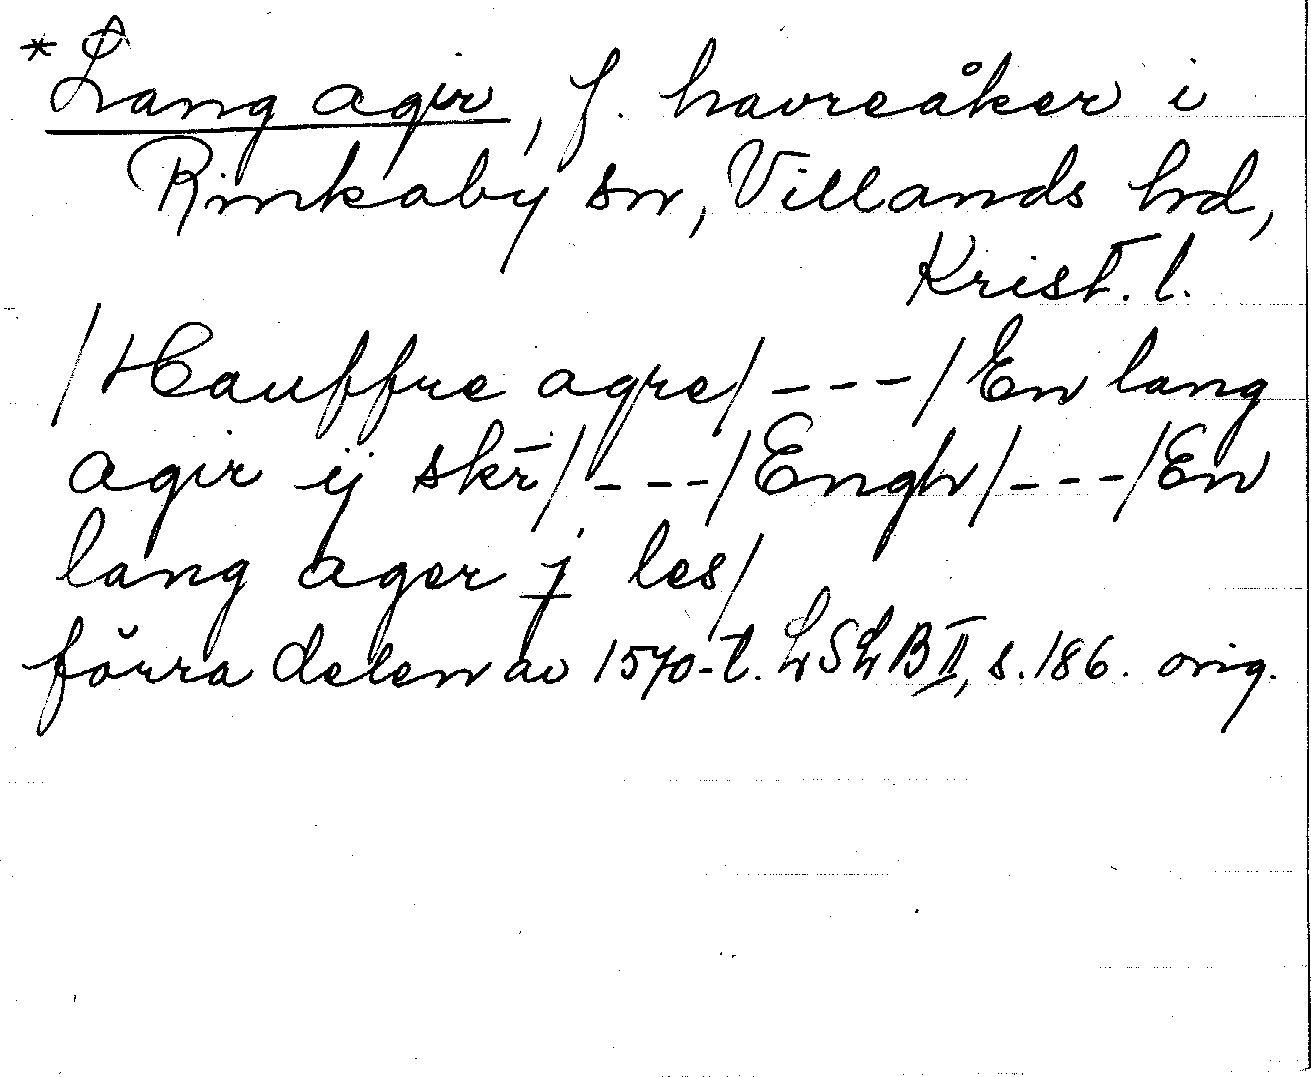 *Lang agir, f. havreåker i
Rinkaby sn, Villands hd,
Krist. l.
/Hauffre agre/ --- /En lang
agir ij skr̄/ --- /Engh/ --- /En
lang ager j les/
förra delen av 1570-t. LSLB II, s. 186. orig.